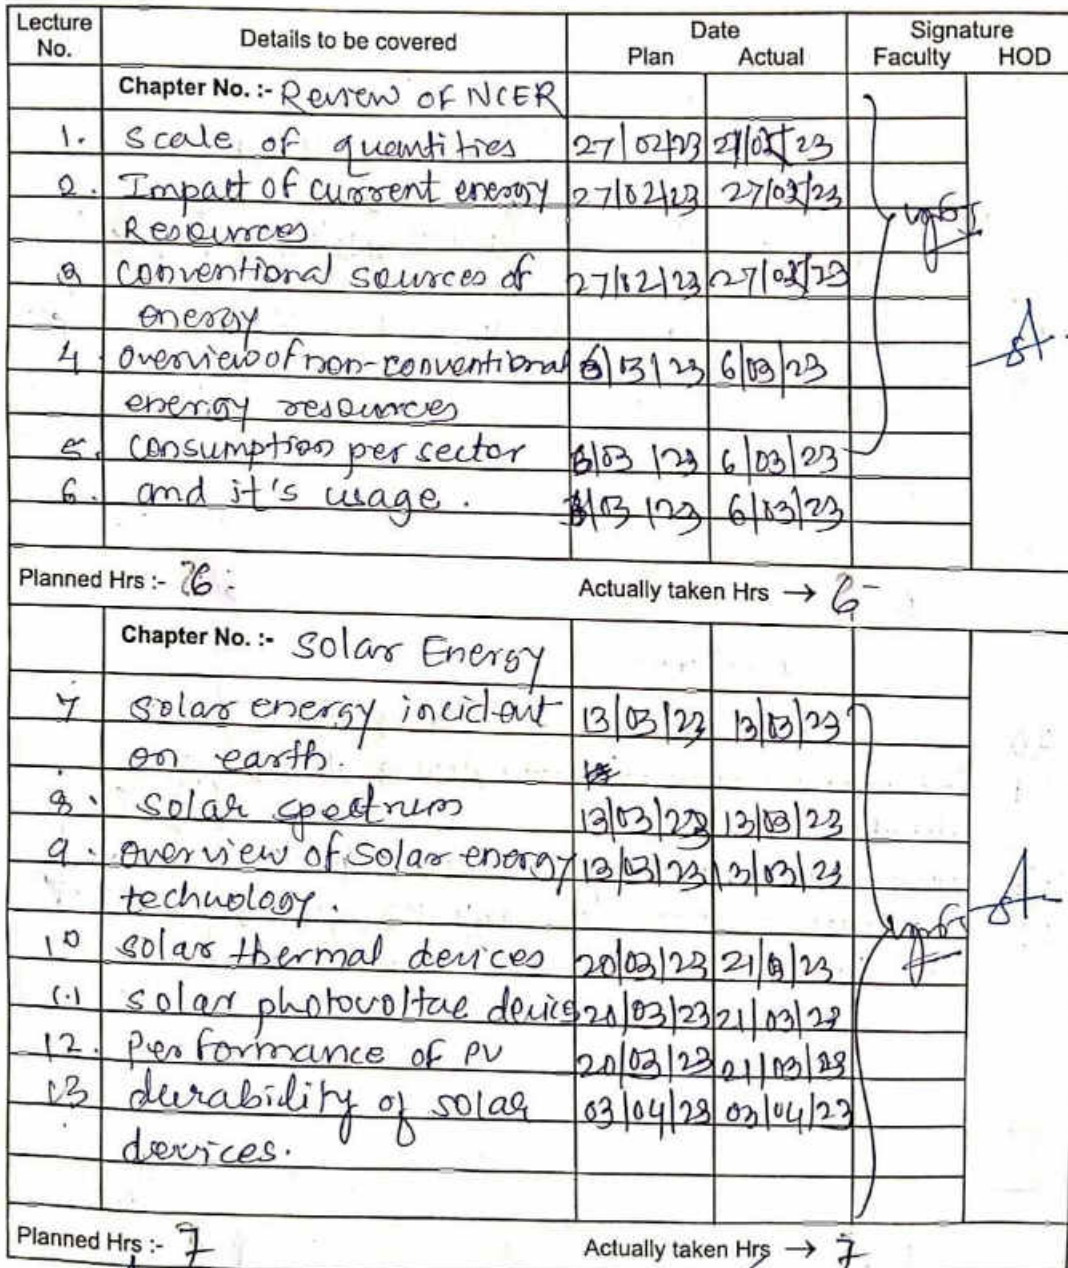 Lecture No. Details to be covered Date Plan Actual Signature Faculty HOD
Chapter No. :- Review of NCER
1. Scale of quantities 27/02/23 23
2. Impact of current energy 27/02/23 27/02/23
Resources
3 Conventional sources of 27/02/23 27/02/23
energy
4 Overview of non-conventional 6/03/23 6/03/23
energy resources
5. Consumption per sector 6/03/23 6/03/23
6. and it's usage. 6/03/23 6/03/23
Planned Hrs :- 6 Actually taken Hrs → 6
Chapter No. :- Solar Energy
7 Solar energy incident 13/03/23 13/03/23
on earth.
8. Solar spectrum 13/03/23 13/03/23
9. Overview of solar energy 13/03/23 13/03/23
technology.
10 Solar thermal devices 20/03/23 21/03/23
11 Solar photovoltae device 20/03/23 21/03/23
12. Performance of PV 20/03/23 21/03/23
13 durability of solar 03/04/23 03/04/23
devices.
Planned Hrs :- 7 Actually taken Hrs → 7